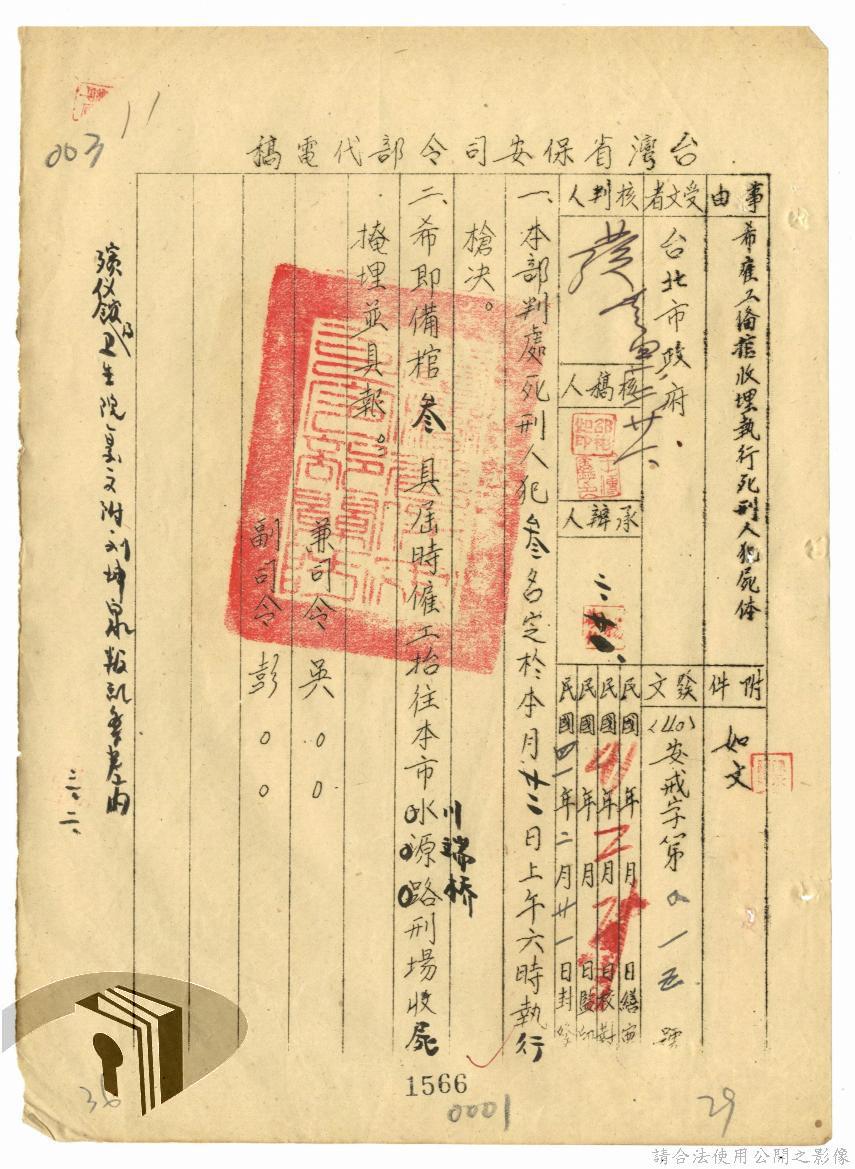 003
11
台灣省保安司令部代電稿
事由
希雇工備棺收埋執行死刑人犯屍体
附件
如文
受文者
台北市政府
發文
(40)安戒字第〇一五號
核判人
核稿人
承辦人
民國年月日繕寫
民國41年2月日校對
民國年月日監印
民國四一年二月廿一日封發
一、本部判處死刑人犯叁名定於本月廿二日上午六時執行
槍决。
二、希即備棺叁具屆時僱工抬往本市水源路刑場收屍
川端桥
掩埋並具報。
兼司令吳〇〇
副司令彭〇〇
殯仪館及卫生院复文附刘坤泉叛乱案卷內
三、二、
1566
0001
29
36
請合法使用公開之影像